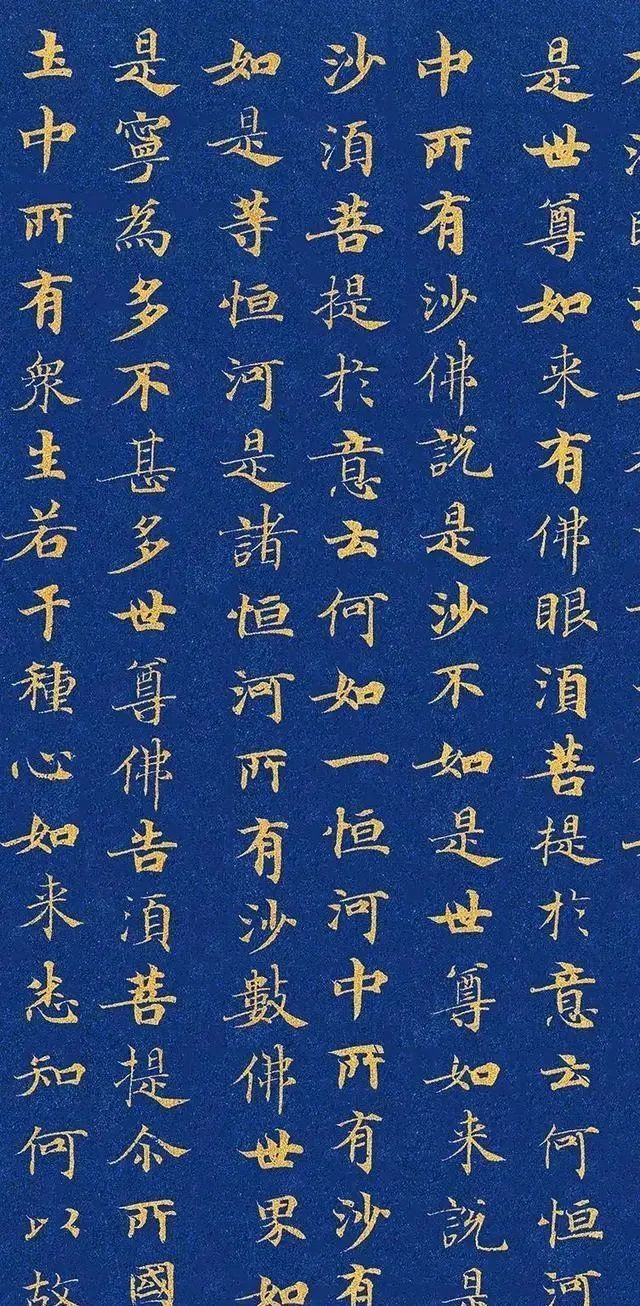 是世尊如来有佛眼須菩提於意云何恒河
中所有沙佛説是沙不如是世尊如来説是
沙須菩提於意云何如一恒河中所有沙有
如是等恒河是諸恒河所有沙數佛世界如
是寧為多不甚多世尊佛告須菩提尒所國
土中所有衆生若干種心如来悉知何以故